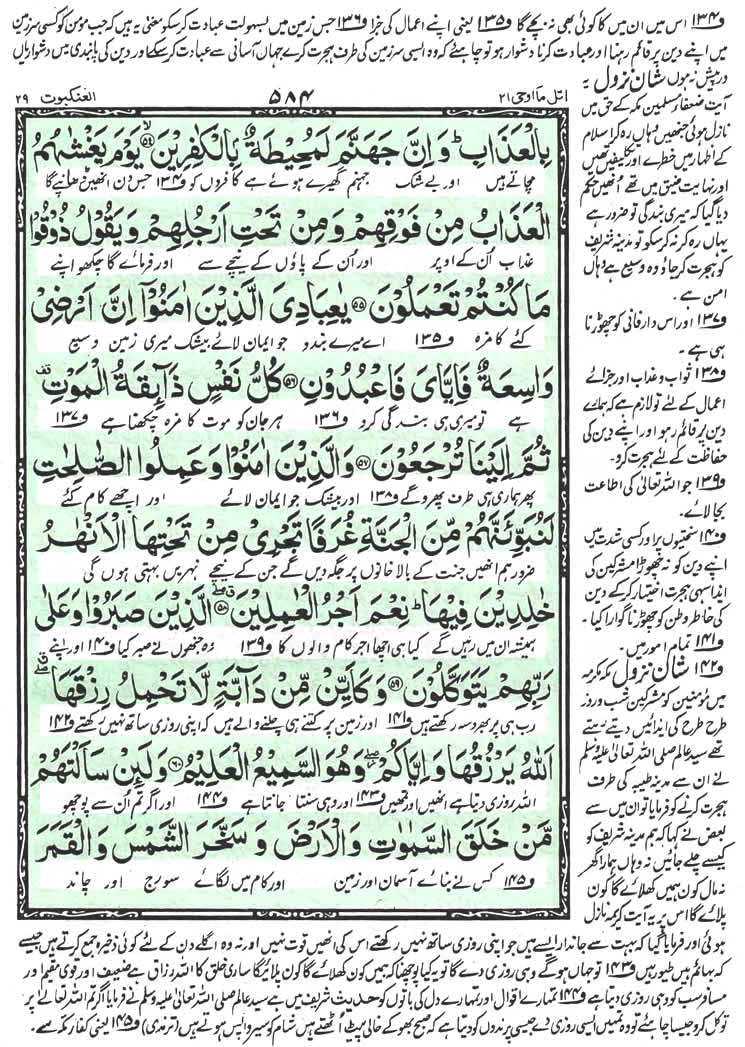 و۱۳۴ اس میں ان میں کا کوئی بھی نہ بچے گا و۱۳۵ یعنی اپنے اعمال کی جزا و۱۳۶ جس زمین میں بسہولت عبادت کر سکو معنی یہ ہیں کہ جب مومن کو کسی سرزمین
میں اپنے دین پر قائم رہنا اور عبادت کرنا دشوار ہو تو چاہئے کہ وہ ایسی سرزمین کی طرف ہجرت کرے جہاں آسانی سے عبادت کر سکے اور دین کی پابندی میں دشواریاں
درپیش نہ ہوں شانِ نزول یہ
آیت ضعفاءِ مسلمین مکہ کے حق میں
نازل ہوئی جنھیں وہاں رہ کر اسلام
کے اظہار میں خطرے اور تکلیفیں تھیں
اور نہایت ضیق میں تھے اُنھیں حکم
دیا گیا کہ میری بندگی تو ضرور ہے
یہاں رہ کر نہ کر سکو تو مدینہ شریف
کو ہجرت کر جاؤ وہ وسیع ہے وہاں
امن ہے۔
و۱۳۷ اور اس دارِ فانی کو چھوڑنا
ہی ہے۔
و۱۳۸ ثواب و عذاب اور جزائے
اعمال کے لئے تو لازم ہے کہ ہمارے
دین پر قائم رہو اور اپنے دین کی
حفاظت کے لئے ہجرت کرو۔
و۱۳۹ جو اللہ تعالیٰ کی اطاعت
بجا لائے۔
و۱۴۰ سختیوں پر اور کسی شدت میں
اپنے دین کو نہ چھوڑا مشرکین کی
ایذا سہی ہجرت اختیار کر کے دین
کی خاطر وطن کو چھوڑنا گوارا کیا۔
و۱۴۱ تمام امور میں۔
و۱۴۲ شانِ نزول مکہ مکرمہ
میں مؤمنین کو مشرکین شب و روز
طرح طرح کی ایذائیں دیتے رہتے
تھے سید عالم صلی اللہ تعالیٰ علیہ وسلم
نے ان سے مدینہ طیبہ کی طرف
ہجرت کرنے کو فرمایا تو ان میں سے
بعض نے کہا کہ ہم مدینہ شریف کو
کیسے چلے جائیں نہ وہاں ہمارا گھر
نہ مال کون ہمیں کھلائے گا کون
پلائے گا اس پر یہ آیت کریمہ نازل
العنکبوت ۲۹
۵۸۴
اتل ما اوحی ۲۱
بِالْعَذَابِ ؕ وَ اِنَّ جَهَنَّمَ لَمُحِیْطَةٌۢ بِالْكٰفِرِیْنَ ۙ۝۵۴ یَوْمَ یَغْشٰىهُمُ
مچاتے ہیں اور بے شک جہنم گھیرے ہوئے ہے کافروں کو و۱۳۴ جس دن انھیں ڈھانپے گا
الْعَذَابُ مِنْ فَوْقِهِمْ وَ مِنْ تَحْتِ اَرْجُلِهِمْ وَ یَقُوْلُ ذُوْقُوْا
عذاب اُن کے اوپر اور اُن کے پاؤں کے نیچے سے اور فرمائے گا چکھو اپنے
مَا كُنْتُمْ تَعْمَلُوْنَ ۝۵۵ یٰعِبَادِیَ الَّذِیْنَ اٰمَنُوْۤا اِنَّ اَرْضِیْ
کئے کا مزہ و۱۳۵ اے میرے بندو جو ایمان لائے بیشک میری زمین وسیع
وَاسِعَةٌ فَاِیَّایَ فَاعْبُدُوْنِ ۝۵۶ كُلُّ نَفْسٍ ذَآىِٕقَةُ الْمَوْتِ ۫
ہے تو میری ہی بندگی کرو و۱۳۶ ہر جان کو موت کا مزہ چکھنا ہے و۱۳۷
ثُمَّ اِلَیْنَا تُرْجَعُوْنَ ۝۵۷ وَ الَّذِیْنَ اٰمَنُوْا وَ عَمِلُوا الصّٰلِحٰتِ
پھر ہماری ہی طرف پھرو گے و۱۳۸ اور بیشک جو ایمان لائے اور اچھے کام کئے
لَنُبَوِّئَنَّهُمْ مِّنَ الْجَنَّةِ غُرَفًا تَجْرِیْ مِنْ تَحْتِهَا الْاَنْهٰرُ
ضرور ہم انھیں جنت کے بالا خانوں پر جگہ دیں گے جن کے نیچے نہریں بہتی ہوں گی
خٰلِدِیْنَ فِیْهَا ؕ نِعْمَ اَجْرُ الْعٰمِلِیْنَ ۝۵۸ الَّذِیْنَ صَبَرُوْا وَ عَلٰی
ہمیشہ ان میں رہیں گے کیا ہی اچھا اجر کام والوں کا و۱۳۹ وہ جنھوں نے صبر کیا و۱۴۰ اور اپنے
رَبِّهِمْ یَتَوَكَّلُوْنَ ۝۵۹ وَ كَاَیِّنْ مِّنْ دَآبَّةٍ لَّا تَحْمِلُ رِزْقَهَا
رب ہی پر بھروسہ رکھتے ہیں و۱۴۱ اور زمین پر کتنے ہی چلنے والے ہیں کہ اپنی روزی ساتھ نہیں رکھتے و۱۴۲
اَللّٰهُ یَرْزُقُهَا وَ اِیَّاكُمْ ۖ وَ هُوَ السَّمِیْعُ الْعَلِیْمُ ۝۶۰ وَ لَىِٕنْ سَاَلْتَهُمْ
اللہ روزی دیتا ہے انھیں اور تمھیں و۱۴۳ اور وہی سنتا جانتا ہے و۱۴۴ اور اگر تم اُن سے پوچھو
مَّنْ خَلَقَ السَّمٰوٰتِ وَ الْاَرْضَ وَ سَخَّرَ الشَّمْسَ وَ الْقَمَرَ
و۱۴۵ کس نے بنائے آسمان اور زمین اور کام میں لگائے سورج اور چاند
ہوئی اور فرمایا گیا کہ بہت سے جاندار ایسے ہیں جو اپنی روزی ساتھ نہیں رکھتے اس کی انھیں قوت نہیں اور نہ وہ اگلے دن کے لئے کوئی ذخیرہ جمع کرتے ہیں جیسے
کہ بہائم ہیں طیور ہیں و۱۴۳ تو جہاں ہو گے وہی روزی دے گا تو یہ کیا پوچھنا کہ ہمیں کون کھلائے گا کون پلائے گا ساری خلق کا اللہ رزاق ہے ضعیف اور قوی مقیم اور
مسافر سب کو وہی روزی دیتا ہے و۱۴۴ تمہارے اقوال اور تمہارے دل کی باتوں کو حدیث شریف میں ہے سید عالم صلی اللہ تعالیٰ علیہ وسلم نے فرمایا اگر تم اللہ تعالیٰ پر
توکل کرو جیسا چاہئے تو وہ تمہیں ایسی روزی دے جیسی پرندوں کو دیتا ہے کہ صبح بھوکے خالی پیٹ اُٹھتے ہیں شام کو سیر واپس ہوتے ہیں (ترمذی) و۱۴۵ یعنی کفار مکہ سے۔